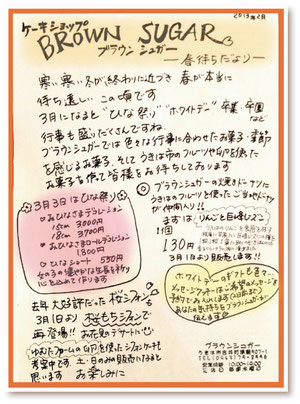 2013年2月
ケーキショップ
BROWN SUGAR
ブラウンシュガー
―春待ちだより―
寒い寒い冬が終わりに近づき 春が本当に
待ち遠しいこの頃です
3月になると"ひな祭り""ホワイトデー"卒業、卒園など
行事も盛りだくさんですね。
ブラウンシュガーでは色々な行事に合わせたお菓子・季節
を感じるお菓子、そしてうきは市のフルーツや卵を使った
お菓子を作って皆様をお待ちしております
3月3日はひな祭り
おひなさまデコレーション
15cm 3,000円
18cm 3,780円
おひなさまロールデコレーション
1,800円
ひなショート 350円
女の子の健やかな成長を祈り
心を込めて作ります
ブラウンシュガーの焼きドーナツに
うきはのフルーツを使ったご当地ドーナツ
が仲間入り!!
まずはりんごと
1個
130円
3月1日より販売します!!
ホワイトデーのギフトも色々…
メッセージクッキーはご希望のメッセージを
予約でお入れします
あなたの気持ちをブラウンシュガーが
伝えします
去年大好評だった桜シフォンも
3月1日より桜もちシフォンで
再登場!! お花見のデザートに…
ゆむたファームの卵を使ったシフォンケーキも
考案中です 土・日のみの販売になると
思います お楽しみに
ブラウンシュガー
うきは市吉井町
営業時間 10:00~
定休日 毎週水曜日